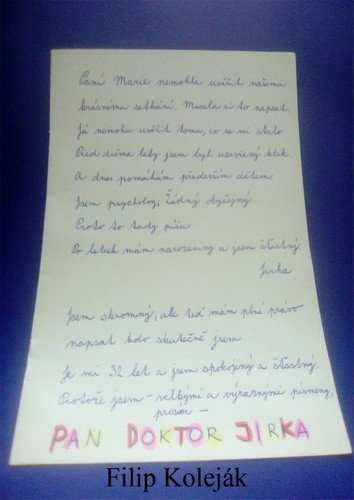 Paní Marie nemohla uvěřit našemu
krásnému setkání. Musela si to napsat.
Já nemohu uvěřit tomu, co se mi stalo
Před dvěma lety jsem byl uzavřený kluk
A dnes pomáhám především dětem
Jsem psycholog, Žádný obyčejný
Proto to tady píšu
Po letech mám narozeniny a jsem šťastný
Jirka
Jsem skromný, ale teď mám plné právo
napsat kdo skutečně jsem
Je mi 32 let a jsem spokojený a šťastný.
Protože jsem - velkými a výraznými písmeny,
prosím -
PAN DOKTOR JIRKA
Filip Koleják